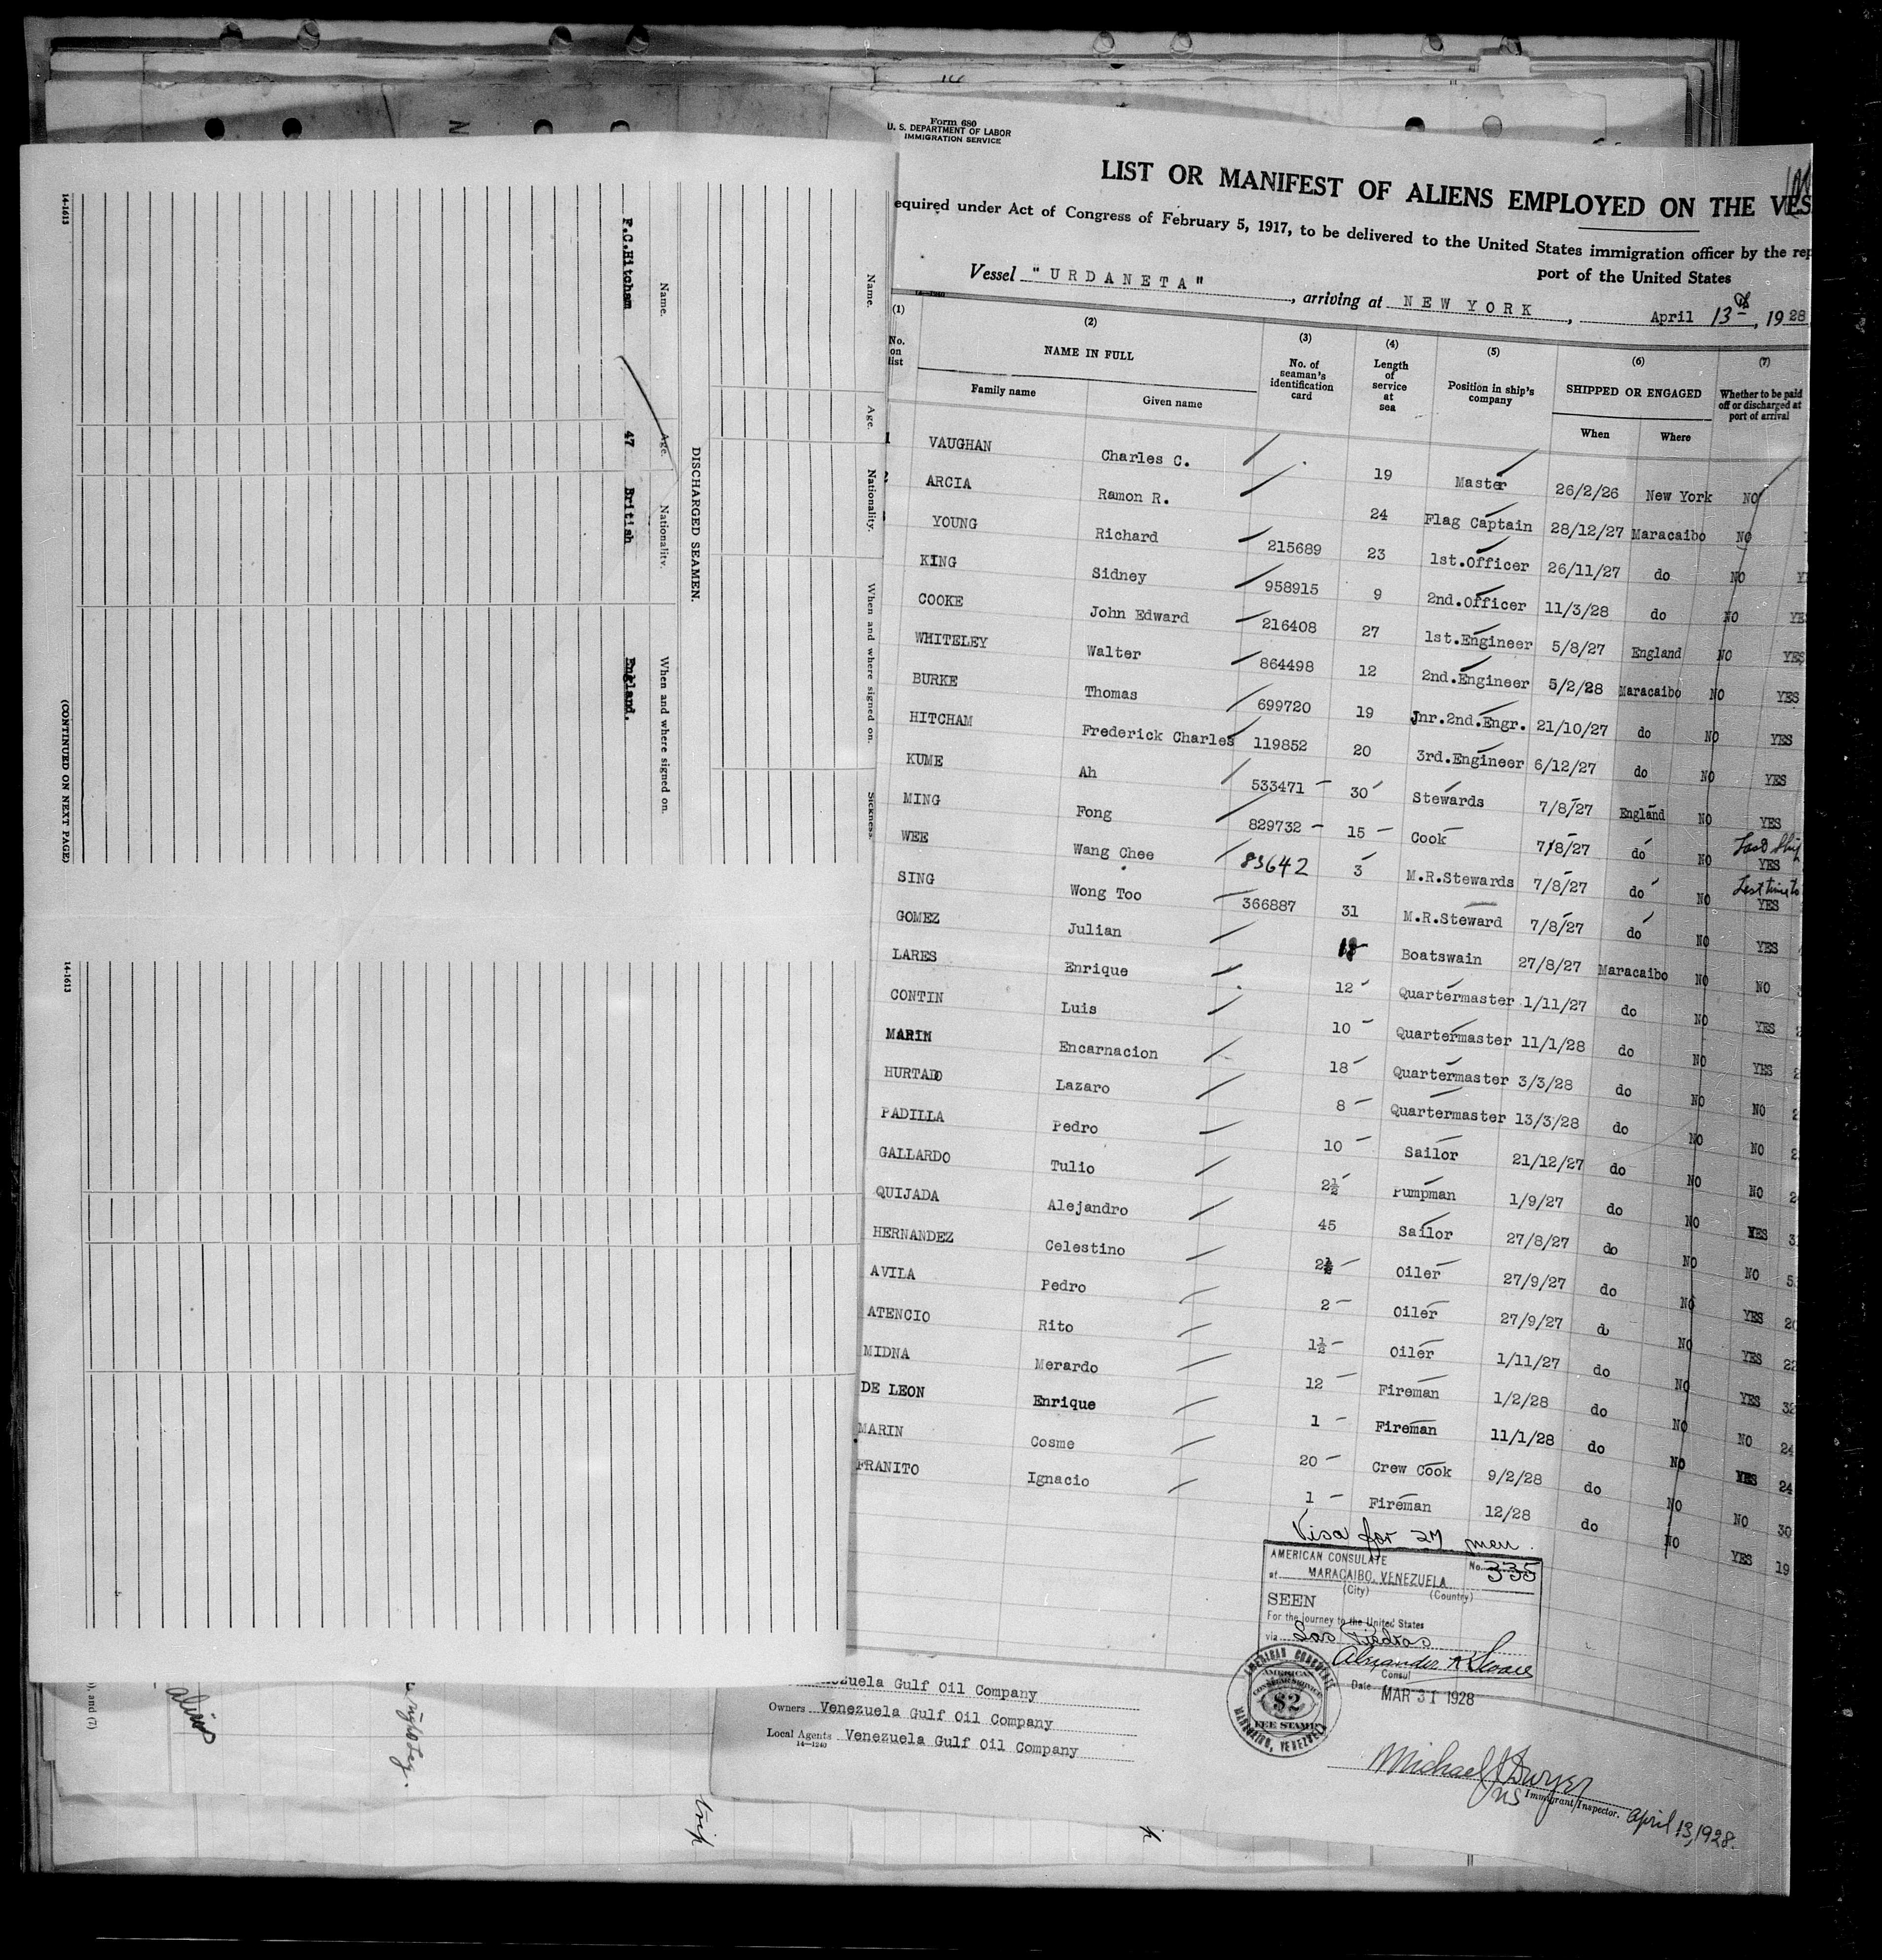 Form 680
U. S. DEPARTMENT OF LABOR
IMMIGRATION SERVICE
LIST OR MANIFEST OF ALIENS EMPLOYED ON THE VES
equired under Act of Congress of February 5, 1917, to be delivered to the United States immigration officer by the rep
port of the United States
Vessel "URDANETA", arriving at NEW YORK, April 13th, 1928
14-1240
(1) (2) (3) (4) (5) (6) (7)
No. on list
NAME IN FULL
Family name Given name
No. of seaman's identification card
Length of service at sea
Position in ship's company
SHIPPED OR ENGAGED
When Where
Whether to be paid off or discharged at port of arrival
1 VAUGHAN Charles C. 19 Master 26/2/26 New York NO
2 ARCIA Ramon R. 24 Flag Captain 28/12/27 Maracaibo NO
YOUNG Richard 215689 23 1st.Officer 26/11/27 do NO Y
KING Sidney 958915 9 2nd.Officer 11/3/28 do NO YE
COOKE John Edward 216408 27 1st.Engineer 5/8/27 England NO YES
WHITELEY Walter 864498 12 2nd.Engineer 5/2/28 Maracaibo NO YES
BURKE Thomas 699720 19 Jnr.2nd.Engr. 21/10/27 do NO YES
HITCHAM Frederick Charles 119852 20 3rd.Engineer 6/12/27 do NO YES
KUME Ah 533471 30 Stewards 7/8/27 England NO YES
MING Fong 829732 15 Cook 7/8/27 do NO YES
WEE Wang Chee 83642 3 M.R.Stewards 7/8/27 do NO YES
SING Wong Too 366887 31 M.R.Steward 7/8/27 do NO YES
GOMEZ Julian 18 Boatswain 27/8/27 Maracaibo NO NO
LARES Enrique 12 Quartermaster 1/11/27 do NO YES
CONTIN Luis 10 Quartermaster 11/1/28 do NO YES
MARIN Encarnacion 18 Quartermaster 3/3/28 do NO NO
HURTADO Lazaro 8 Quartermaster 13/3/28 do NO NO
PADILLA Pedro 10 Sailor 21/12/27 do NO NO
GALLARDO Tulio 2½ Pumpman 1/9/27 do NO YES
QUIJADA Alejandro 45 Sailor 27/8/27 do NO NO
HERNANDEZ Celestino 2½ Oiler 27/9/27 do NO YES
AVILA Pedro 2 Oiler 27/9/27 d NO YES
ATENCIO Rito 1½ Oiler 1/11/27 do NO YES
MIDNA Merardo 12 Fireman 1/2/28 do NO NO
DE LEON Enrique 1 Fireman 11/1/28 do NO YES
MARIN Cosme 20 Crew Cook 9/2/28 do NO NO
FRANITO Ignacio 1 Fireman 12/28 do NO YES 19
Visa for 27 men.
AMERICAN CONSULATE No. 335
at MARACAIBO, VENEZUELA
(City) (Country)
SEEN
For the journey to the United States
via Las Piedras
Consul
Date MAR 31 1928
AMERICAN CONSULATE
AMERICAN
$2
FEE STAMP
MARACAIBO, VENEZUELA
zuela Gulf Oil Company
Owners Venezuela Gulf Oil Company
Local Agents Venezuela Gulf Oil Company
14-1240
Michael J Dwyer
Immigrant Inspector. April 13, 1928.
Name. Age. Nationality. When and where signed on. Sickness.
DISCHARGED SEAMEN.
Name. Age. Nationality. When and where signed on.
F.C.Hitcham 47 British England.
(CONTINUED ON NEXT PAGE)
14-1613
14-1613
), and (7)
right Leg.
trip